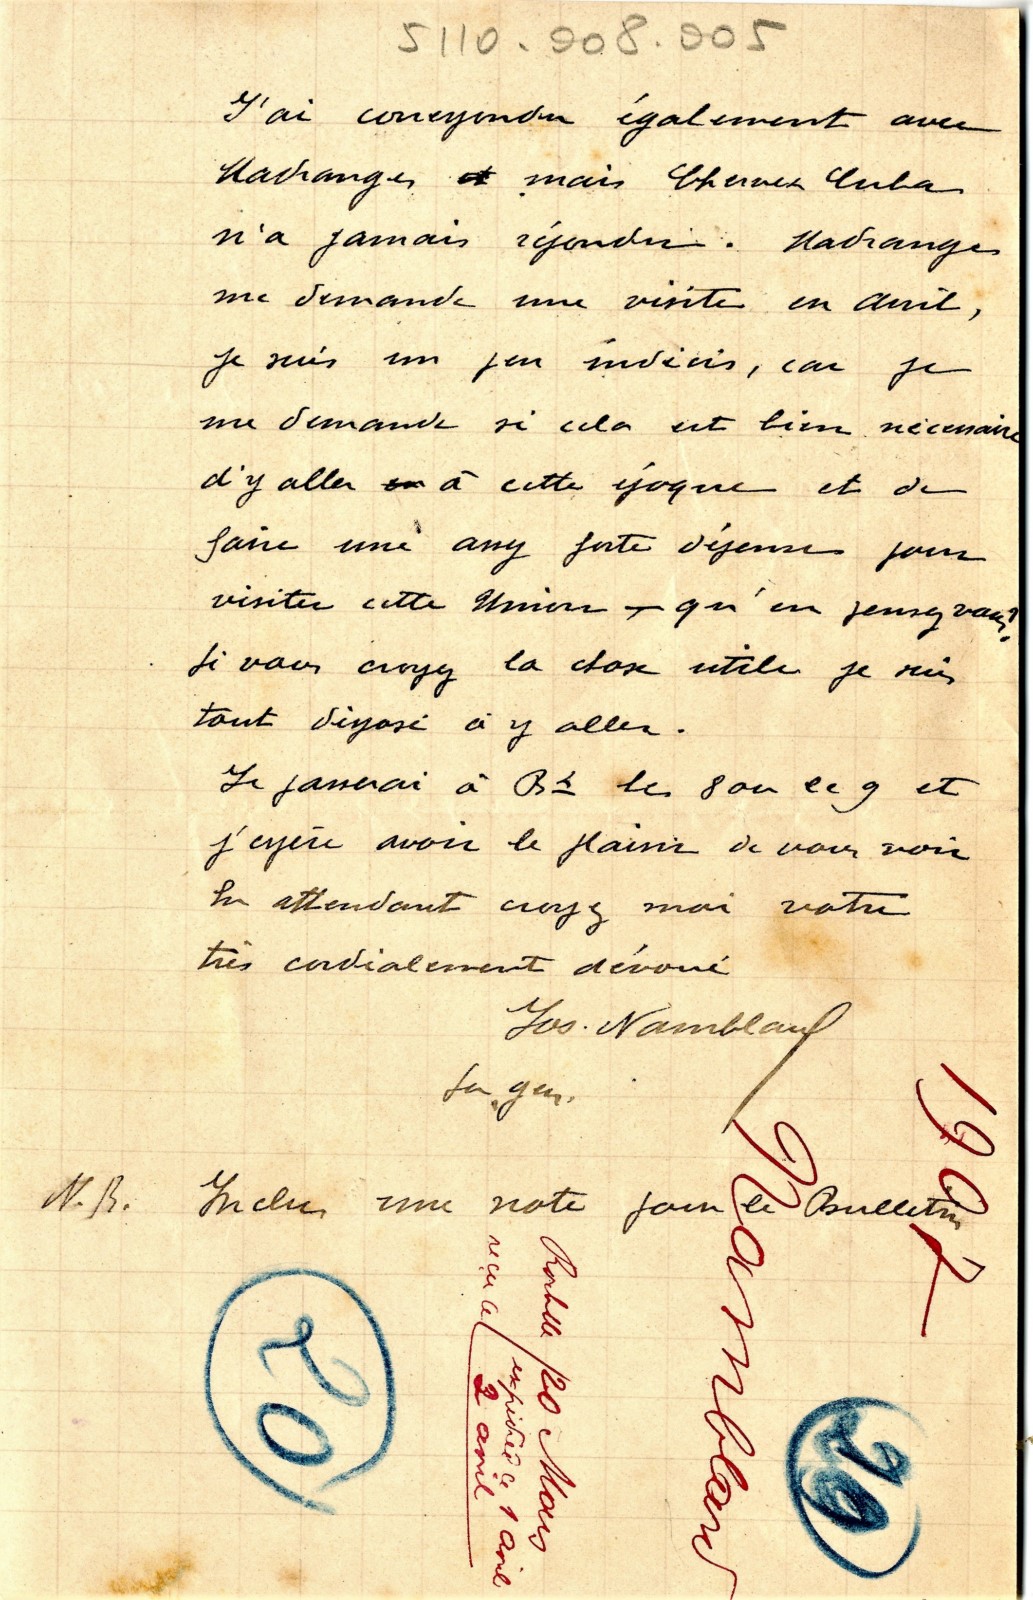 5110.908.005
J'ai correspondu également avec
Madranges et mais Chervex Cubas
n'a jamais répondu. Madranges
me demande une visite en Avril,
je suis un peu indécis, car je
me demande si cela est bien nécessaire
d'y aller en à cette époque et de
faire une assez forte dépense pour
visiter cette Union – qu'en pensez vous?
Si vous croyez la chose utile je suis
tout disposé à y aller.
Je passerai à les 8 ou le 9 et
j'espère avoir le plaisir de vous voir
En attendant croyez moi votre
très cordialement dévoué
Jos. Namblard
N.B. Inclus une note pour le Bulletin
1907
Namblard
20 Mars
expédiée le 1 avril
reçu le 2 avril
20